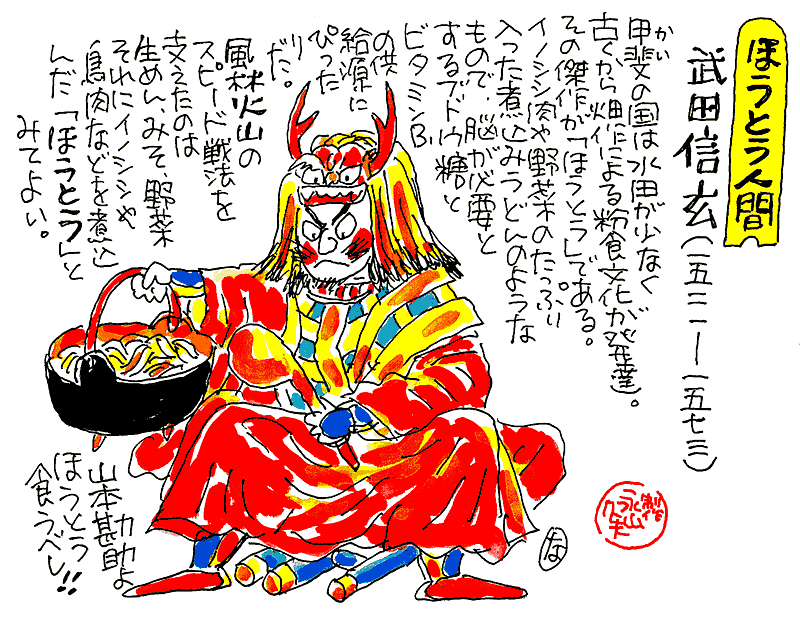 ほうとう人間
武田信玄(一五二一―一五七三)
甲斐の国は水田が少なく
かい
古くから畑作による粉食文化が発達。
その傑作が「ほうとう」である。
イノシシ肉や野菜のたっぷり
入った煮込みうどんのような
もので、脳が必要と
するブドウ糖と
ビタミンB₁
の供
給源に
ぴった
りだ。
風林火山の
スピード戦法を
支えたのは
生めん、みそ、野菜
それにイノシシや
鳥肉などを煮込
んだ「ほうとう」と
みてよい。
山本勘助よ
ほうとう
食うべし!!
な